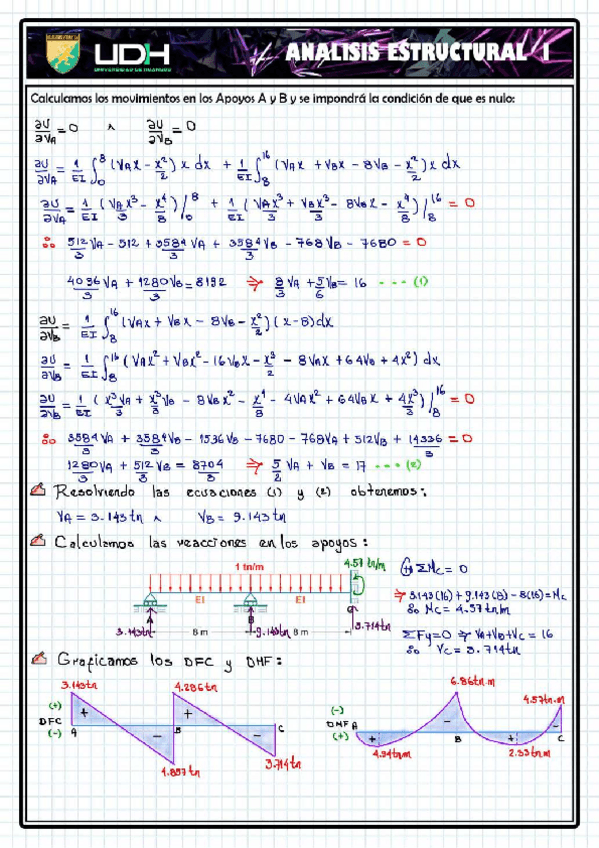 UDH
UNIVERSIDAD DE HUANUCO
ANALISIS ESTRUCTURAL I
Calculamos los movimientos en los Apoyos A y B y se impondrá la condición de que es nulo:
∂U/∂VA = 0 ∧ ∂U/∂VB = 0
∂U/∂VA = 1/EI ∫₀⁸ (VAx - x²/2) x dx + 1/EI ∫₈¹⁶ (VAx + VBx - 8VB - x²/2) x dx
∂U/∂VA = 1/EI (VAx³/3 - x⁴/8) /₀⁸ + 1/EI (VAx³/3 + VBx³/3 - 8VBx - x⁴/8) /₈¹⁶ = 0
∴ 512/3 VA - 512 + 3584/3 VA + 3584/3 VB - 768VB - 7680 = 0
4096/3 VA + 1280/3 VB = 8192 ⇒ 8/3 VA + 5/6 VB = 16 --- (1)
∂U/∂VB = 1/EI ∫₈¹⁶ (VAx + VBx - 8VB - x²/2)(x-8)dx
∂U/∂VB = 1/EI ∫₈¹⁶ (VAx² + VBx² - 16VBx - x³/2 - 8VAx + 64VB + 4x²) dx
∂U/∂VB = 1/EI (x³/3 VA + x³/3 VB - 8VBx² - x⁴/8 - 4VAx² + 64VBx + 4x³/3) /₈¹⁶ = 0
∴ 3584/3 VA + 3584/3 VB - 1536VB - 7680 - 768VA + 512VB + 14336/3 = 0
1280/3 VA + 512/3 VB = 8704/3 ⇒ 5/2 VA + VB = 17 --- (2)
Resolviendo las ecuaciones (1) y (2) obtenemos:
VA = 3.143tn ∧ VB = 9.143tn
Calculamos las reacciones en los apoyos:
1 tn/m
4.57 tn/m
EI
EI
A
B
C
3.143tn
8 m
9.143tn
8 m
3.714tn
(+) ΣMC = 0
⇒ 3.143(16) + 9.143(8) - 8(16) = MC
∴ MC = 4.57tn/m
ΣFy = 0 ⇒ VA+VB+VC = 16
∴ VC = 3.714tn
Graficamos los DFC y DMF:
3.143tn
4.286tn
(+)
DFC
(-)
A
+
-
B
+
-
C
4.857tn
3.714tn
6.86tn.m
4.57tn.m
(-)
DMF
(+)
A
+
-
B
+
-
C
4.94tnm
2.33tn.m